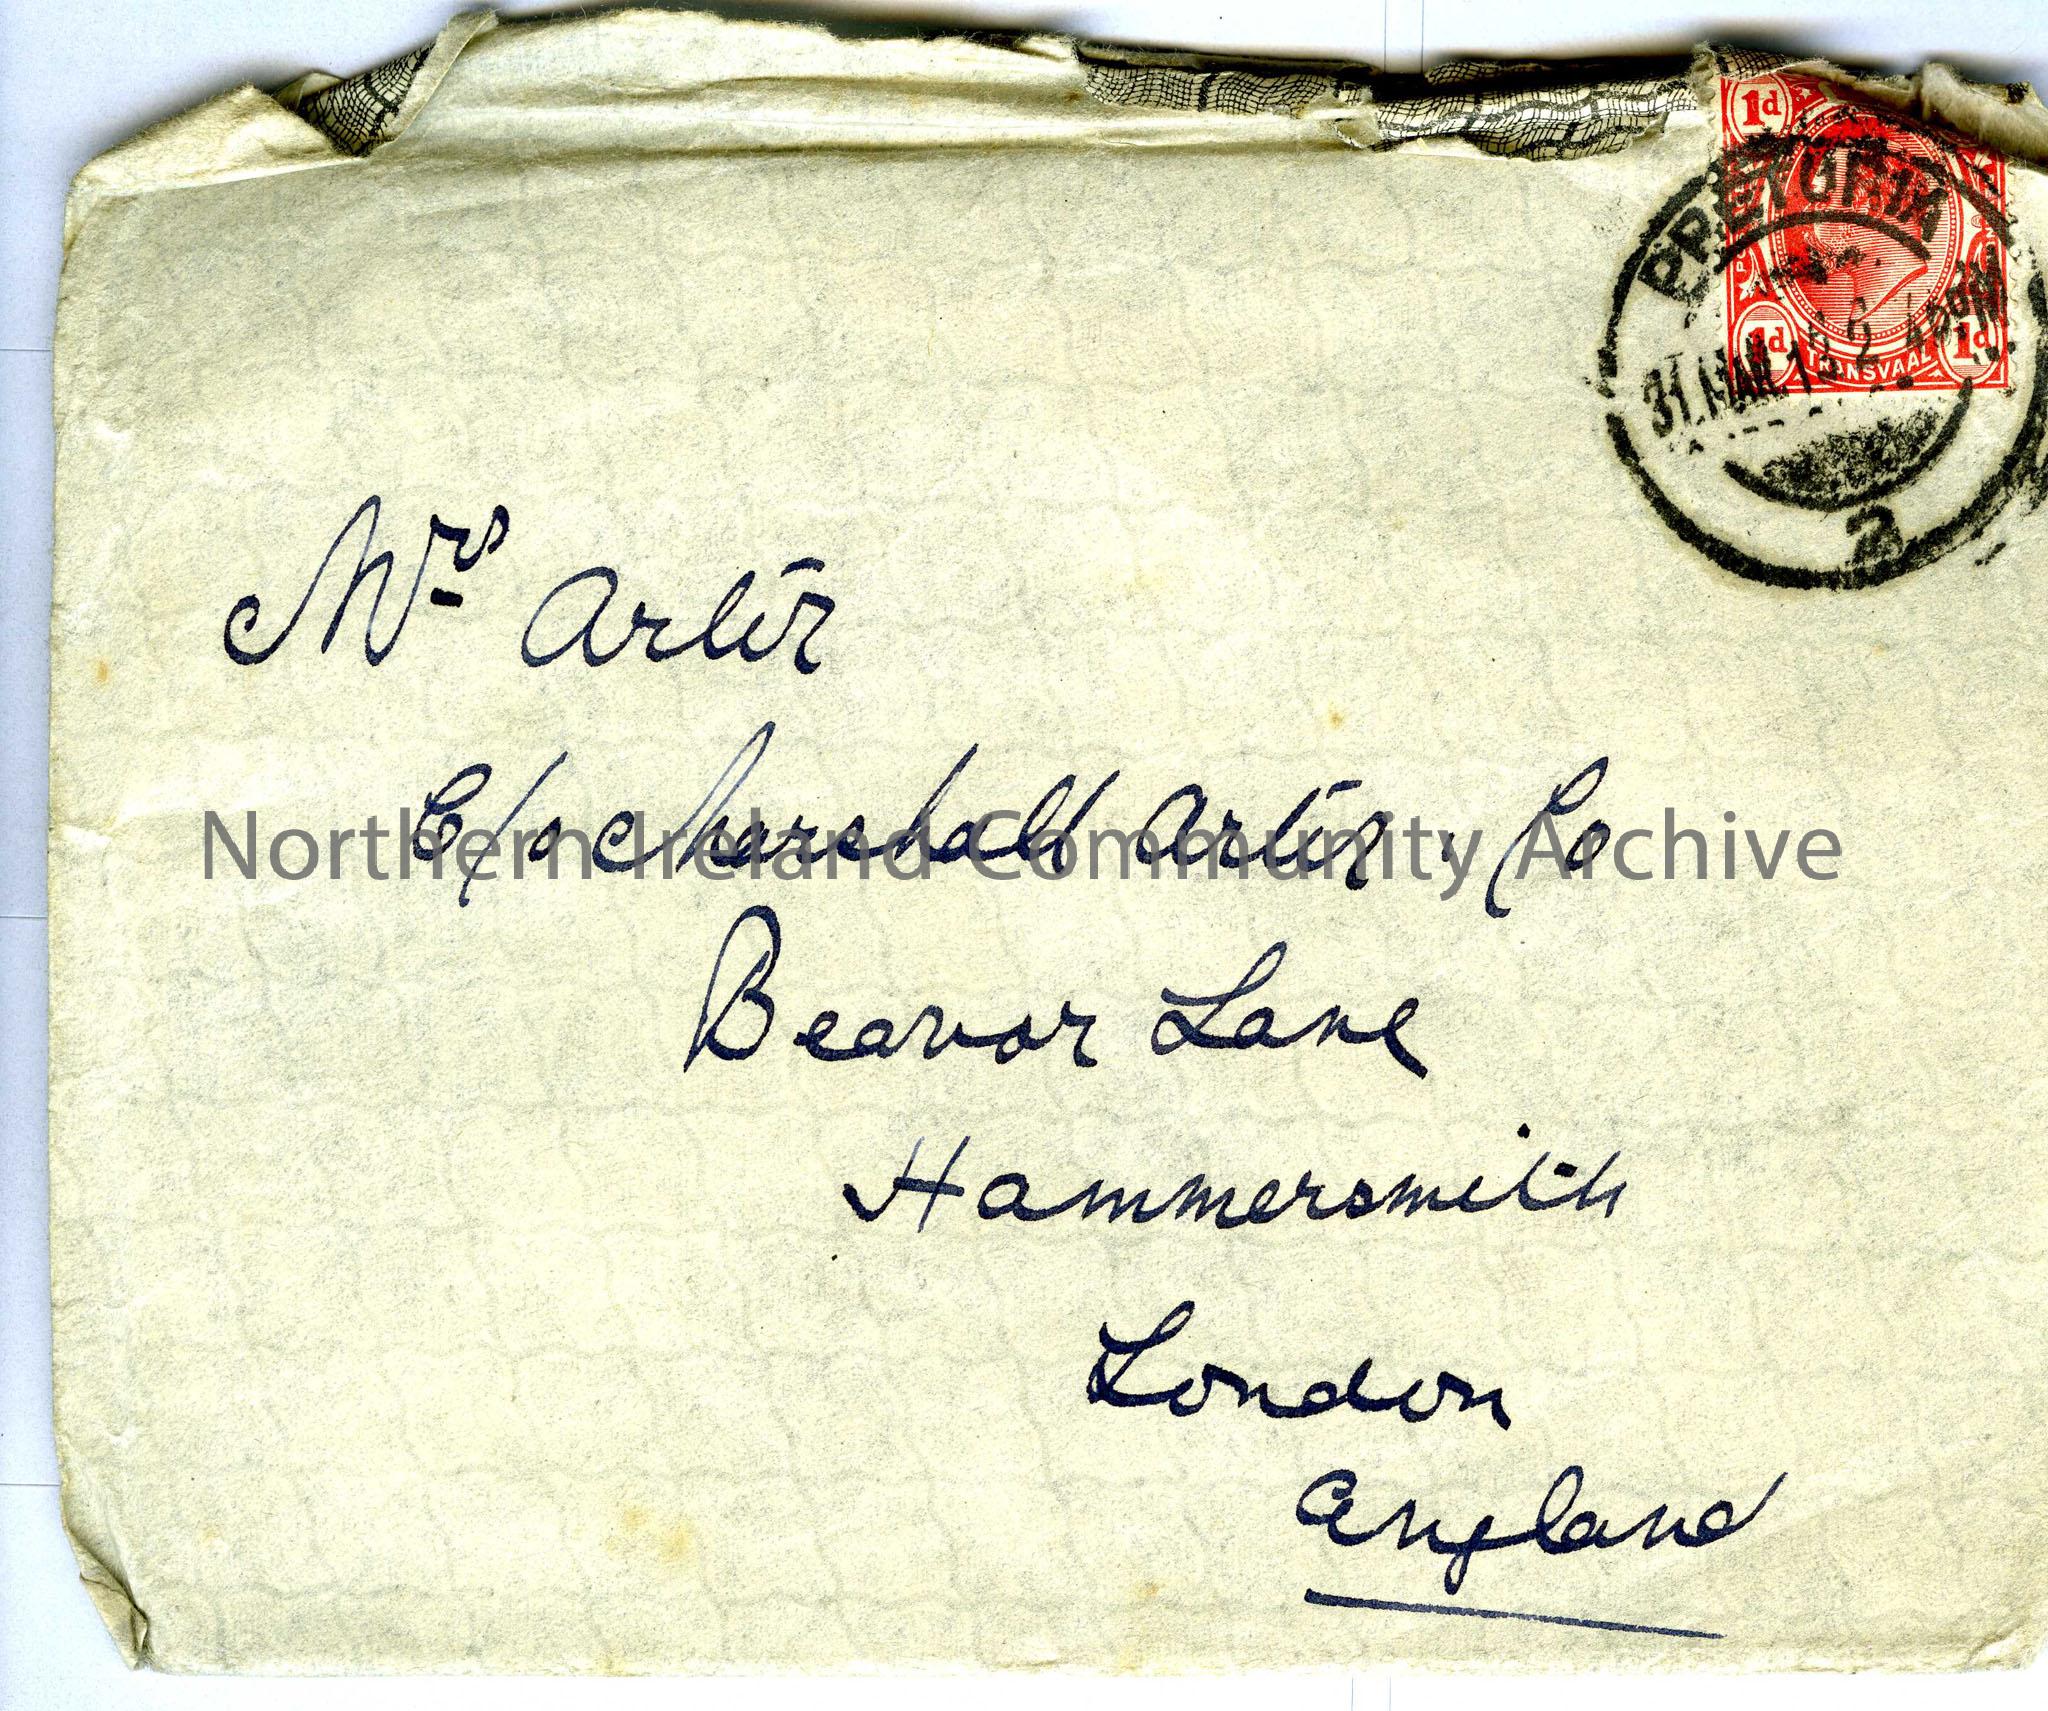 1d
PRETORIA
1d 1d
TRANSVAAL
31.MAR.1
2
Mrs Artīr
C/o Marshall Artīr. Co
Northern Ireland Community Archive
Beavor Lane
Hammersmith
London
England